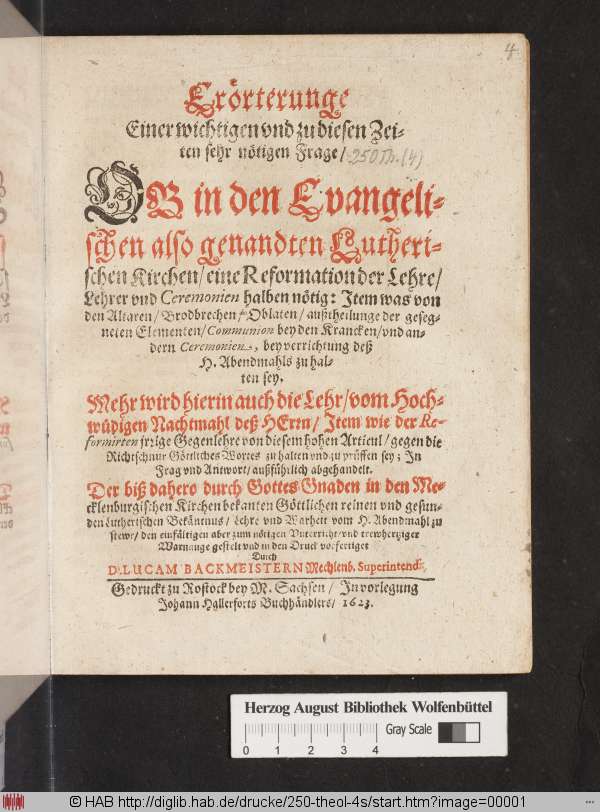 4
Erörterunge
Einer wichtigen vnd zu diesen Zei-
ten sehr nötigen Frage/ 250 Th. (4)
OB in den Evangeli-
schen also genandten Lutheri-
schen Kirchen/ eine Reformation der Lehre/
Lehrer vnd Ceremonien halben nötig: Item was von
den Altaren/ Brodbrechen/ Oblaten/ außtheilunge der geseg-
neten Elementen/ Communion bey den Krancken/ vnd an-
dern Ceremonien, bey verrichtung deß
H. Abendmahls zu hal-
ten sey.
Mehr wird hierin auch die Lehr/ vom Hoch-
wüdigen Nachtmahl deß HErrn/ Item wie der Re-
formirten jrrige Gegenlehre von diesem hohen Articul/ gegen die
Richtschnur Göttliches Wortes zu halten vnd zu prüffen sey; In
Frag vnd Antwort/ außführlich abgehandelt.
Der biß dahero durch Gottes Gnaden in den Me-
cklenburgischen Kirchen bekanten Göttlichen reinen vnd gesun-
den Lutherischen Bekäntnus/ Lehre vnd Warheit vom H. Abendmahl zu
stewr/ den einfältigen aber zum nötigen Vnterricht/ vnd trewhertziger
Warnunge gestelt vnd in den Druck verfertiget
Durch
D. LUCAM BACKMEISTERN Mechlenb. Superintend:
Gedruckt zu Rostock bey M. Sachsen/ In vorlegung
Johann Hallerforts Buchhändlers/ 1623.
Herzog August Bibliothek Wolfenbüttel
Gray Scale
0 1 2 3 4
© HAB http://diglib.hab.de/drucke/250-theol-4s/start.htm?image=00001